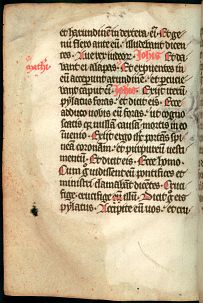 et harundinem in dextera eius. Et ge
nu flexo ante eum. illudebant dicen
tes. Aue rex iudeor. Johis Et da
mathi.
bant ei alapas. Et expuentes in
eum acceperunt arundinem. et percutie
bant caput eius. Johis. Exiit iterum
pylatus foras. et dicit eis. Ecce
adduco uobis eum foras. ut cogno
scatis quia nullam causam mortis in eo
inuenio. Exiit ergo ihs portans spi
neam coronam. et purpureum uesti
mentum. Et dicit eis. Ecce homo.
Cum ergo uidissent eum pontifices et
ministri clamabant dicentes. Cruci
fige. crucifige eum. Dicit ergo eis
pylatus. Accipite eum uos. et cru